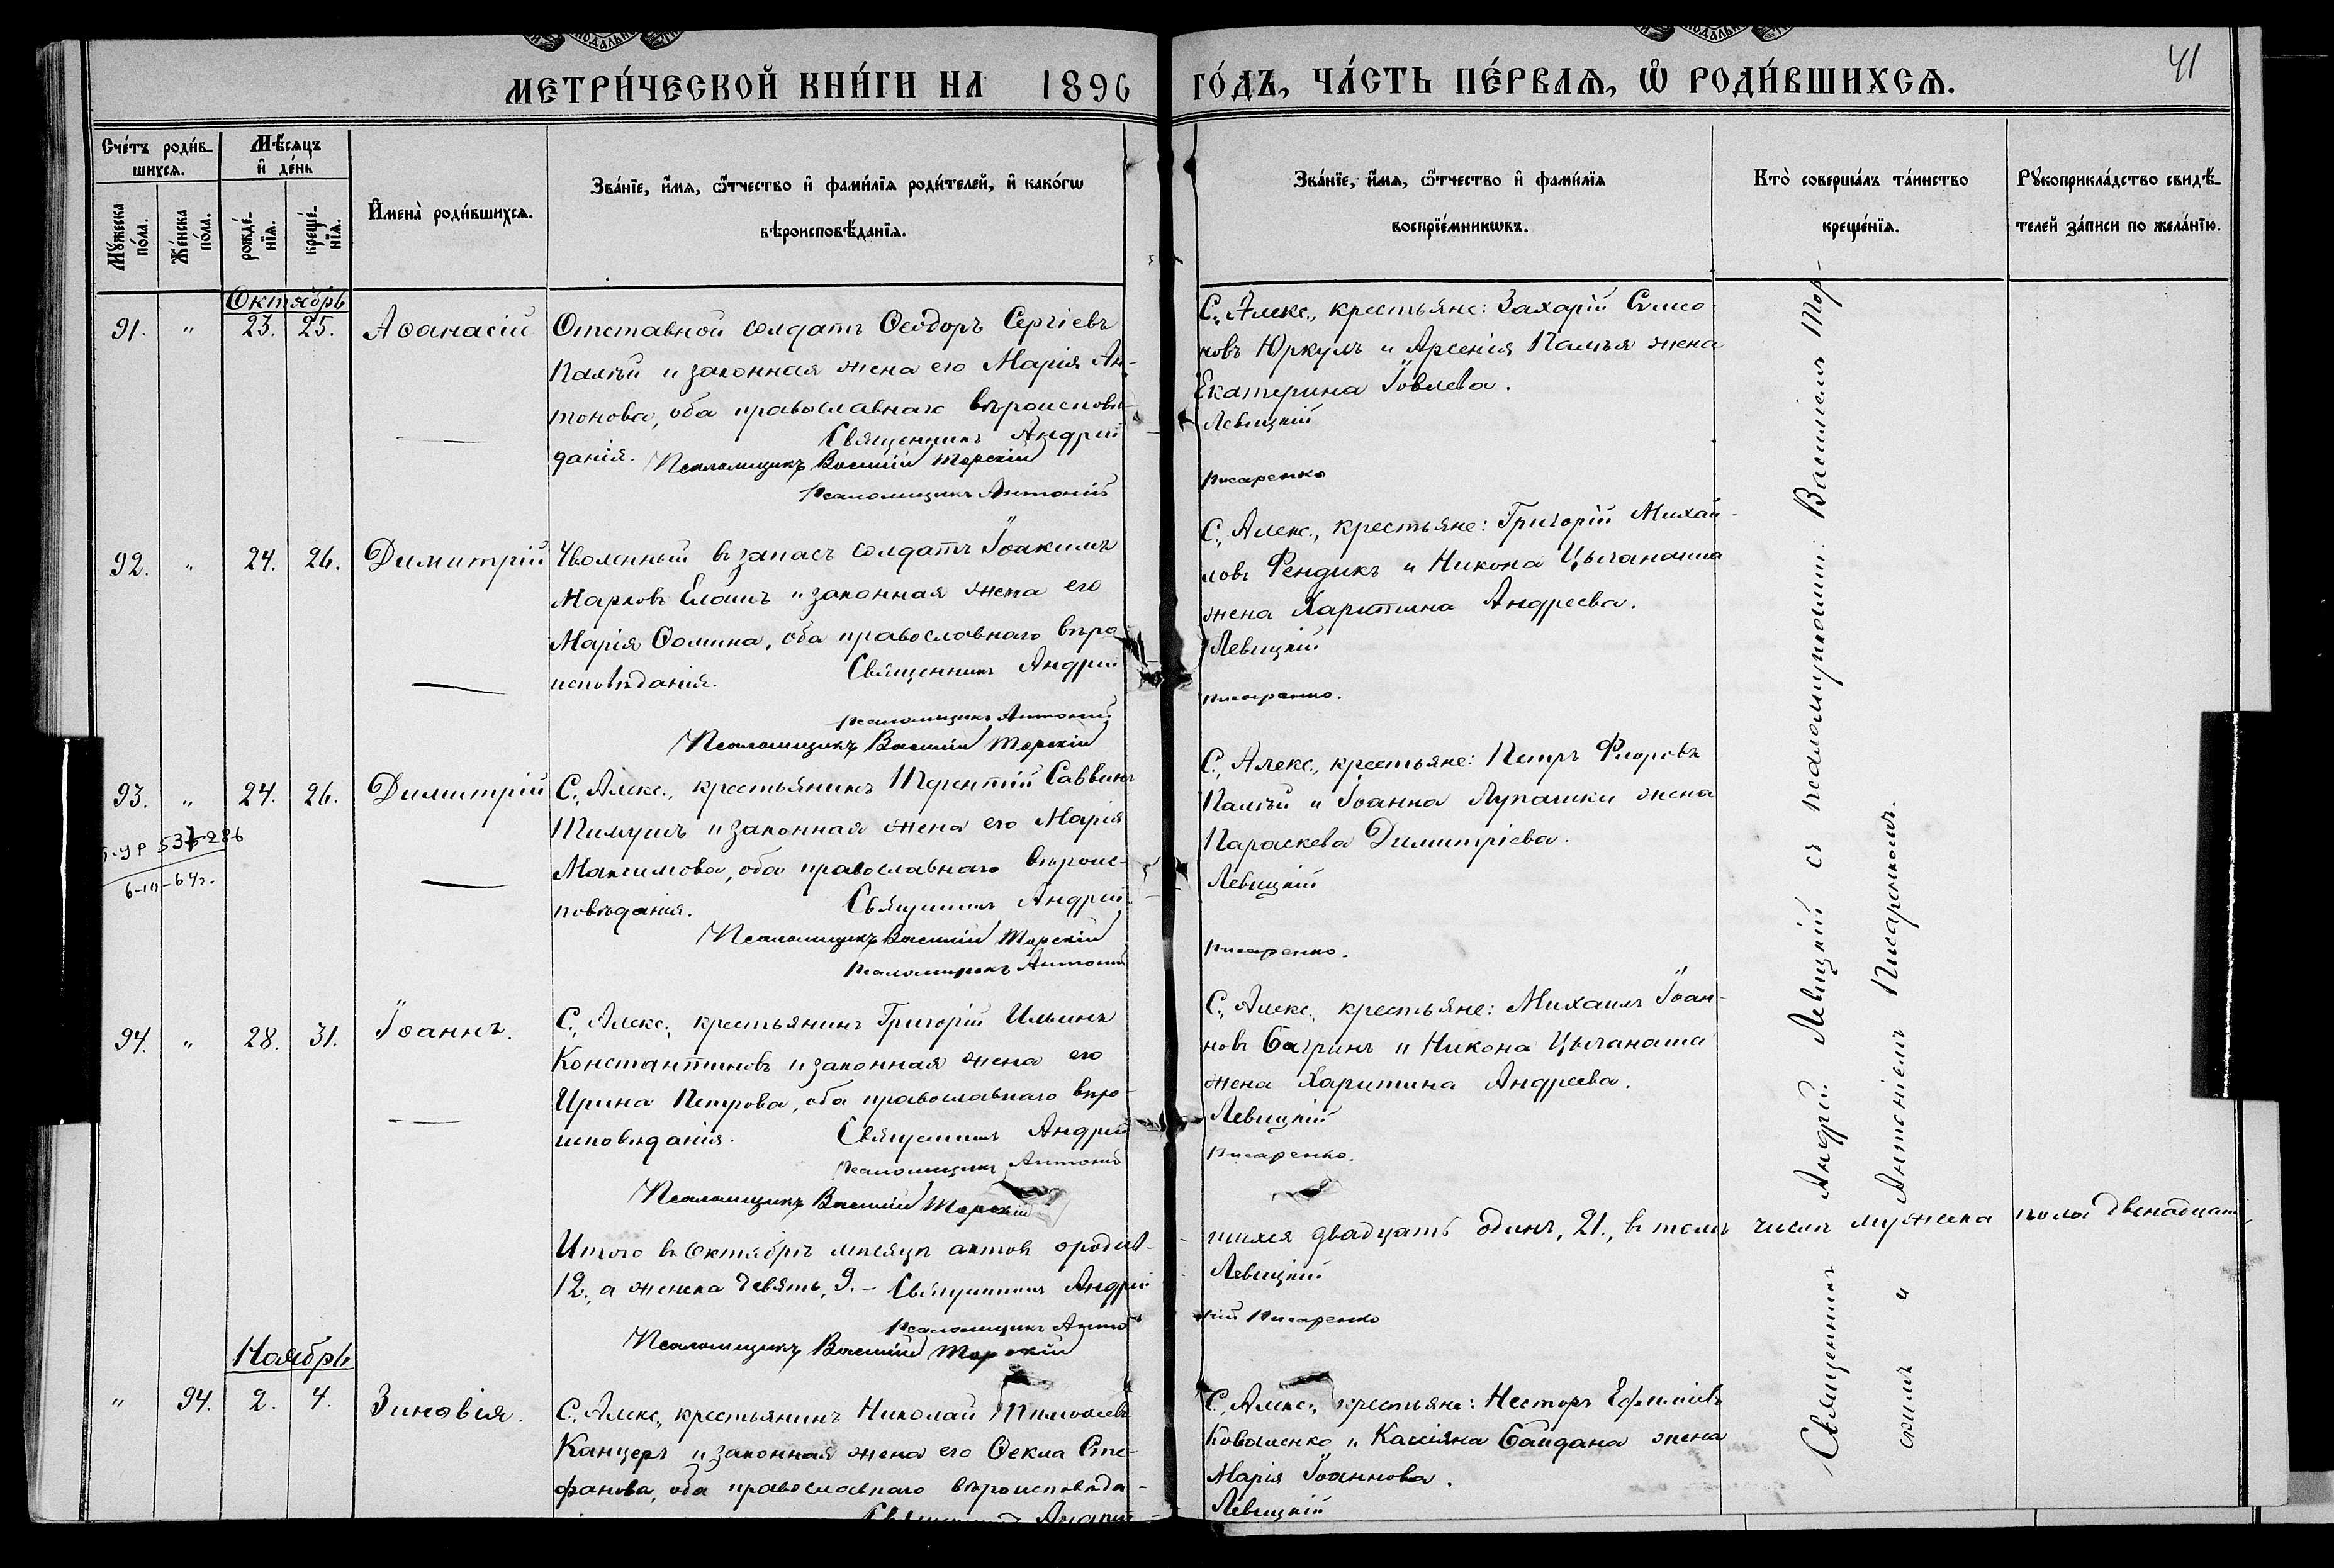 МЕТРИ́ЧЕСКОЙ КНИ́ГИ НА 1896 ГО́ДЪ, ЧА́СТЬ ПЕ́РВАЯ, Ѡ РОДИ́ВШИХСЯ.
41
Сче́тъ роди́в-
шихся.
Мѣ́сяцъ
и҆ де́нь
Мꙋ́жеска
по́ла.
Же́нска
по́ла.
рожде́-
нїя.
креще́-
нїя.
И҆мена̀ роди́вшихся.
Зва́нїе, и҆́мя, ѻ҆́тчество и҆ фами́лїя роди́телей, и҆ како́гѡ
вѣроисповѣ́данїя.
Зва́нїе, и҆́мя, ѻ҆́тчество и҆ фами́лїя
воспрїе́мникѡвъ.
Кто̀ соверша́лъ та́инство
креще́нїя.
Рꙋкоприкла́дство свидѣ́-
телей за́писи по жела́нїю.
Октябрь
91. " 23. 25. Аѳанасій
Отставной солдатъ Ѳеодоръ Сергіевъ
Палій и законная жена его Марія Ан-
тонова, оба православнаго вѣроисповѣ-
данія.
Священникъ Андрей
Псаломщикъ Василій Торскій
Псаломщикъ Антоній
С. Алекс., крестьяне: Захарій Симо
новъ Юркулъ и Арсенія Палія жена
Екатерина Іовлева.
Левицкій
Писаренко
92. " 24. 26. Димитрій
Уволенный въ запасъ солдатъ Іоакимъ
Марковъ Елашъ и законная жена его
Марія Ѳомина, оба православнаго вѣро
исповѣданія.
Священникъ Андрей
Псаломщикъ Антоній
Псаломщикъ Василій Торскій
С. Алекс., крестьяне: Григорій Михай-
ловъ Фендикъ и Никона Цыганаша
жена Харитина Андреева.
Левицкій
Писаренко.
93. " 24. 26. Димитрій
6-III-64г.
С. Алекс., крестьянинъ Терентій Саввинъ
Тимушъ и законная жена его Марія
Максимова, оба православнаго вѣроис-
повѣданія.
Священникъ Андрей
Псаломщикъ Василій Торскій
Псаломщикъ Антоній
С. Алекс., крестьяне: Петръ Флоровъ
Палій и Іоанна Лупашки жена
Параскева Димитріева.
Левицкій
Писаренко.
94. " 28. 31. Іоаннъ.
С. Алекс., крестьянинъ Григорій Ильинъ
Константиновъ и законная жена его
Ирина Петрова, оба православнаго вѣро-
исповѣданія.
Священникъ Андрей
Псаломщикъ Антоній
Псаломщикъ Василій Торскій
С. Алекс., крестьяне: Михаилъ Іоан-
новъ Багринъ и Никона Цыганаша
жена Харитина Андреева.
Левицкій
Писаренко.
Итого въ Октябрѣ мѣсяцѣ актовъ о родив-
шихся двадцать одинъ, 21., въ томъ числѣ мужеска пола двенадцать
12., а женска девять, 9. – Священникъ Андрей
Левицкій
Псаломщикъ Анто
ній Писаренко
Псаломщикъ Василій Торскій
Ноябрь
" 94. 2. 4. Зиновія.
С. Алекс., крестьянинъ Николай Тимоѳеевъ
Канцеръ и законная жена его Ѳекла Сте-
фанова, оба православнаго вѣроисповѣда-
Священникъ Андрей
С. Алекс., крестьяне: Несторъ Ефиміевъ
Коваленко и Касіяна Байдана жена
Марія Іоаннова.
Левицкій
Священникъ Андрей Левицкій съ псаломщиками: Василіемъ Тор-
скимъ и Антоніемъ Писаренкомъ.